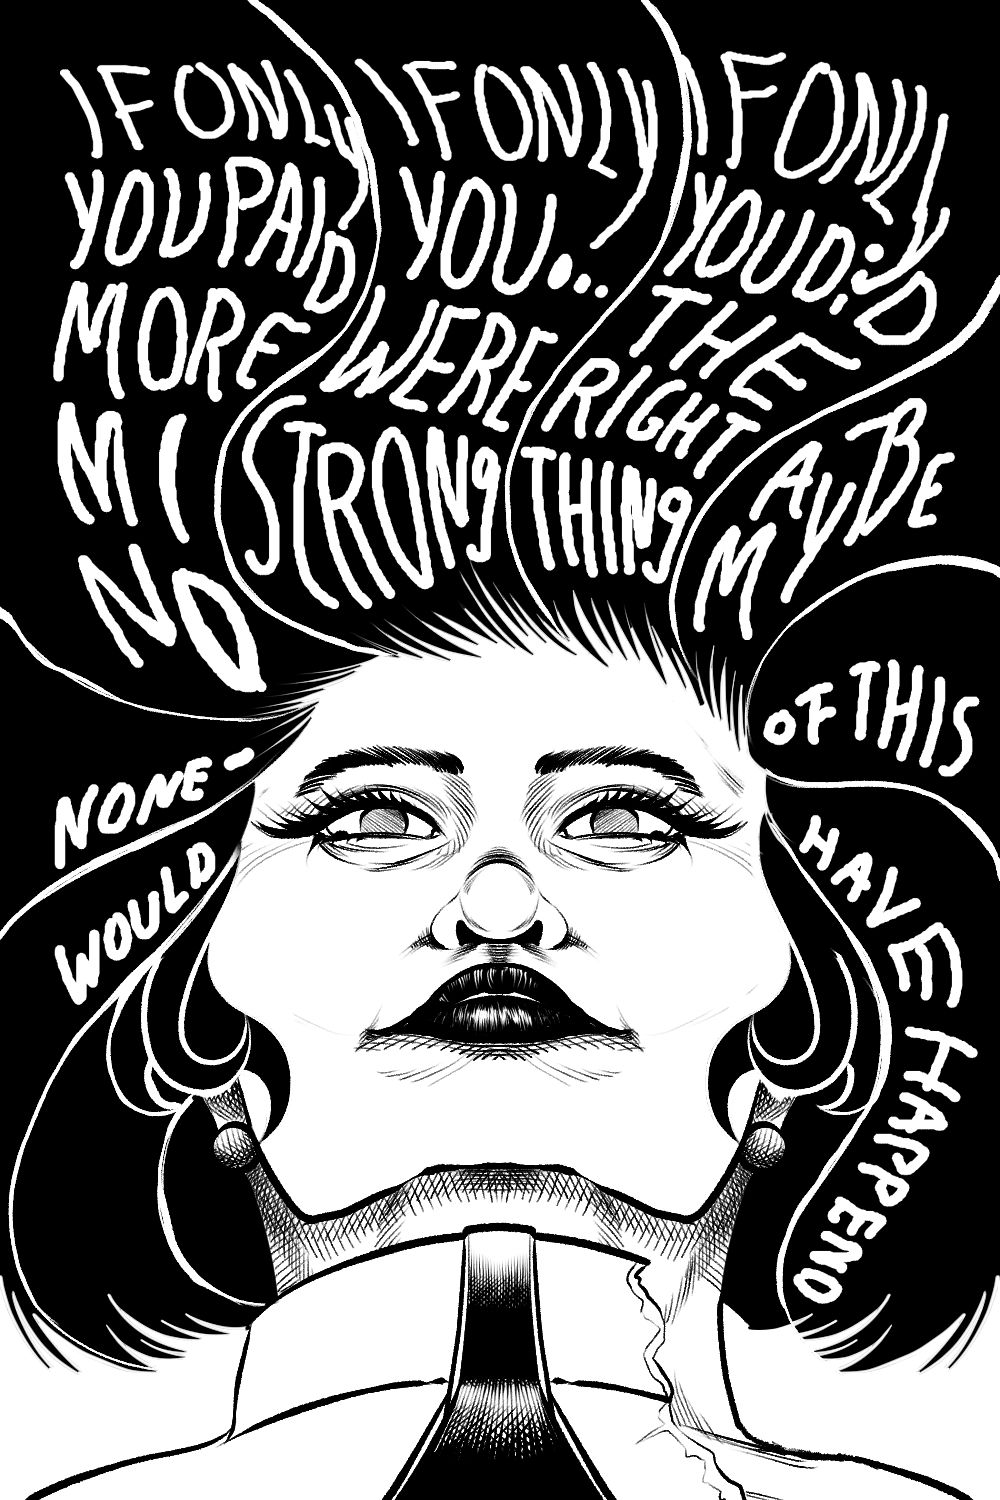 IF ONLy
YOU PAID
MORE
MI
ND
IF ONLy
YOU...
WERE
STRONg
IF ONLy
YOU DiD
THE
RIGHT
THINg
MAyBE
NONE-
OF THIS
WOULD
HAVE HAPPEND